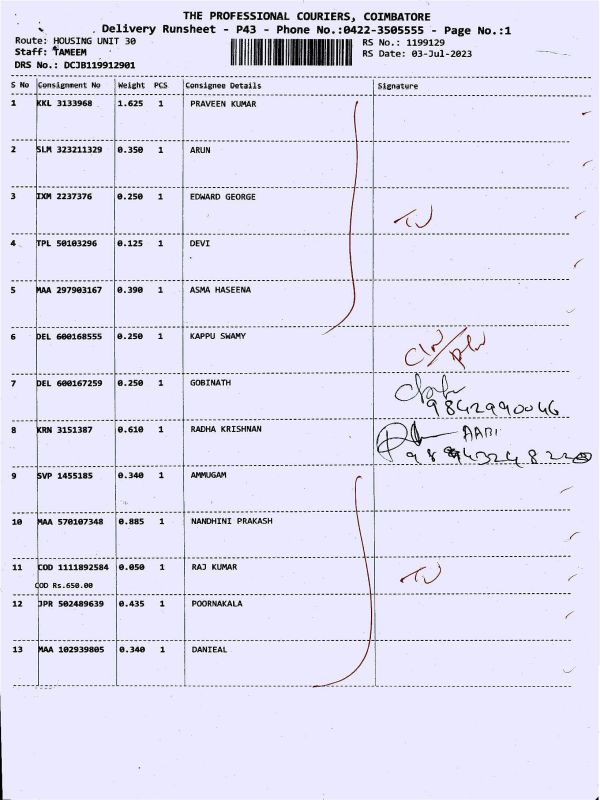 THE PROFESSIONAL COURIERS, COIMBATORE
Delivery Runsheet - P43 - Phone No.:0422-3505555 - Page No.:1
Route: HOUSING UNIT 30
RS No.: 1199129
Staff: TAMEEM
RS Date: 03-Jul-2023
DRS No.: DCJB119912901
S No Consignment No Weight PCS Consignee Details Signature
1 KKL 3133968 1.625 1 PRAVEEN KUMAR
2 SLM 323211329 0.350 1 ARUN
3 IXM 2237376 0.250 1 EDWARD GEORGE
4 TPL 50103296 0.125 1 DEVI
5 MAA 297903167 0.390 1 ASMA HASEENA
6 DEL 600168555 0.250 1 KAPPU SWAMY
7 DEL 600167259 0.250 1 GOBINATH
9842990046
8 KRN 3151387 0.610 1 RADHA KRISHNAN
AARI
9 SVP 1455185 0.340 1 AMMUGAM
10 MAA 570107348 0.885 1 NANDHINI PRAKASH
11 COD 1111892584 0.050 1 RAJ KUMAR
COD Rs.650.00
12 JPR 502489639 0.435 1 POORNAKALA
13 MAA 102939805 0.340 1 DANIEAL